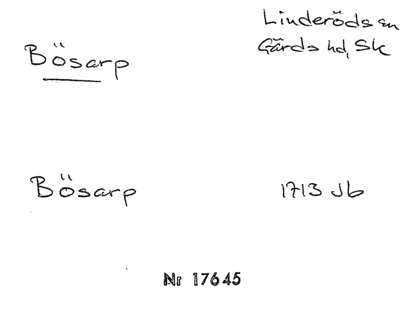 Bösarp
Linderöds sn
Gärds hd, Sk
Bösarp
1713 Jb
Nr 17645